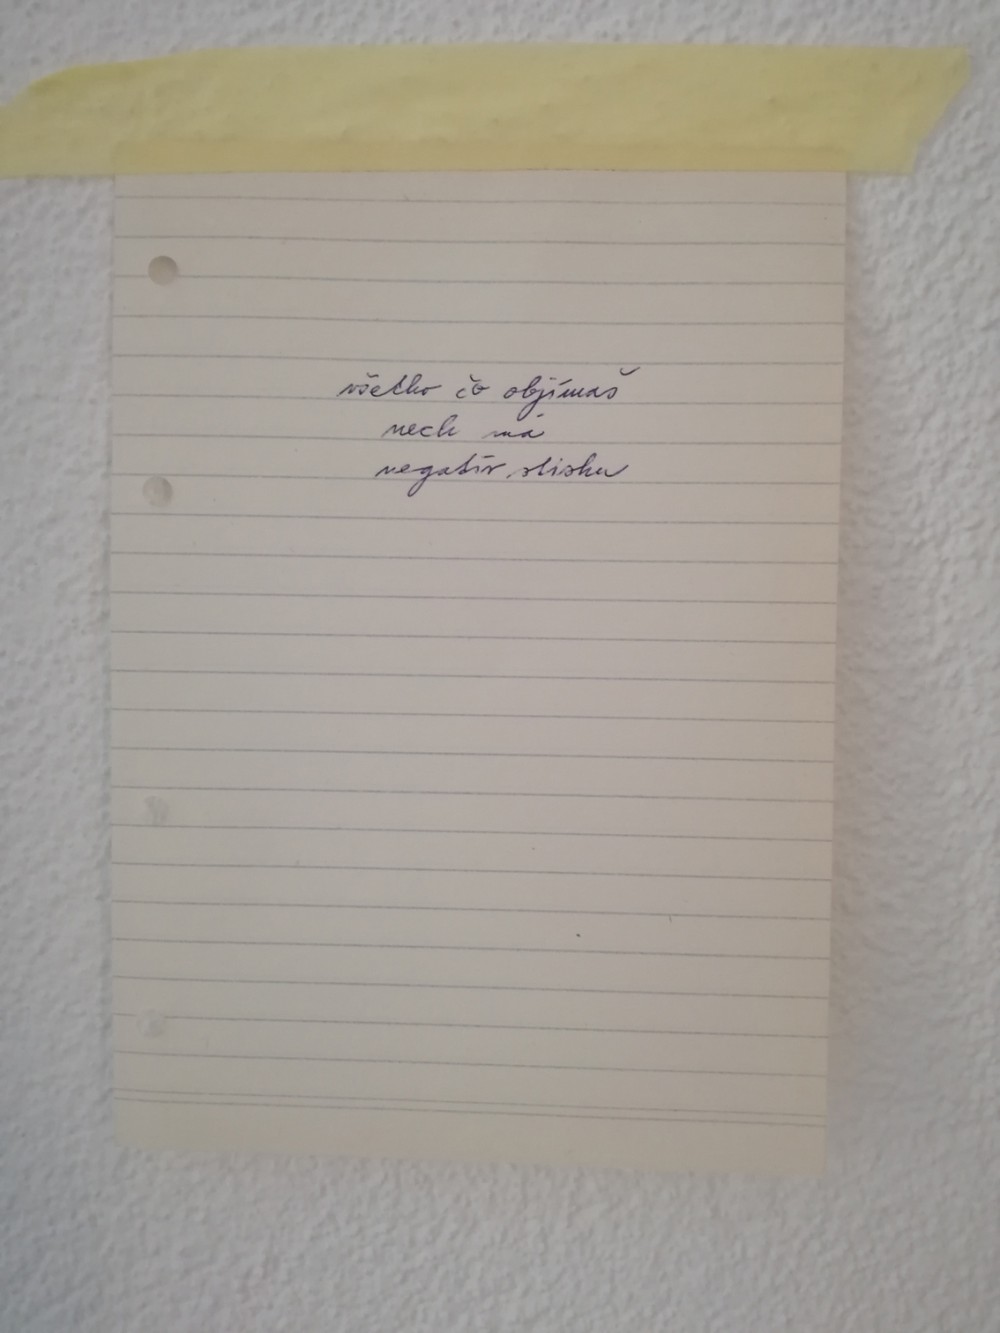 všetko čo objímaš
nech má
negatív stisku